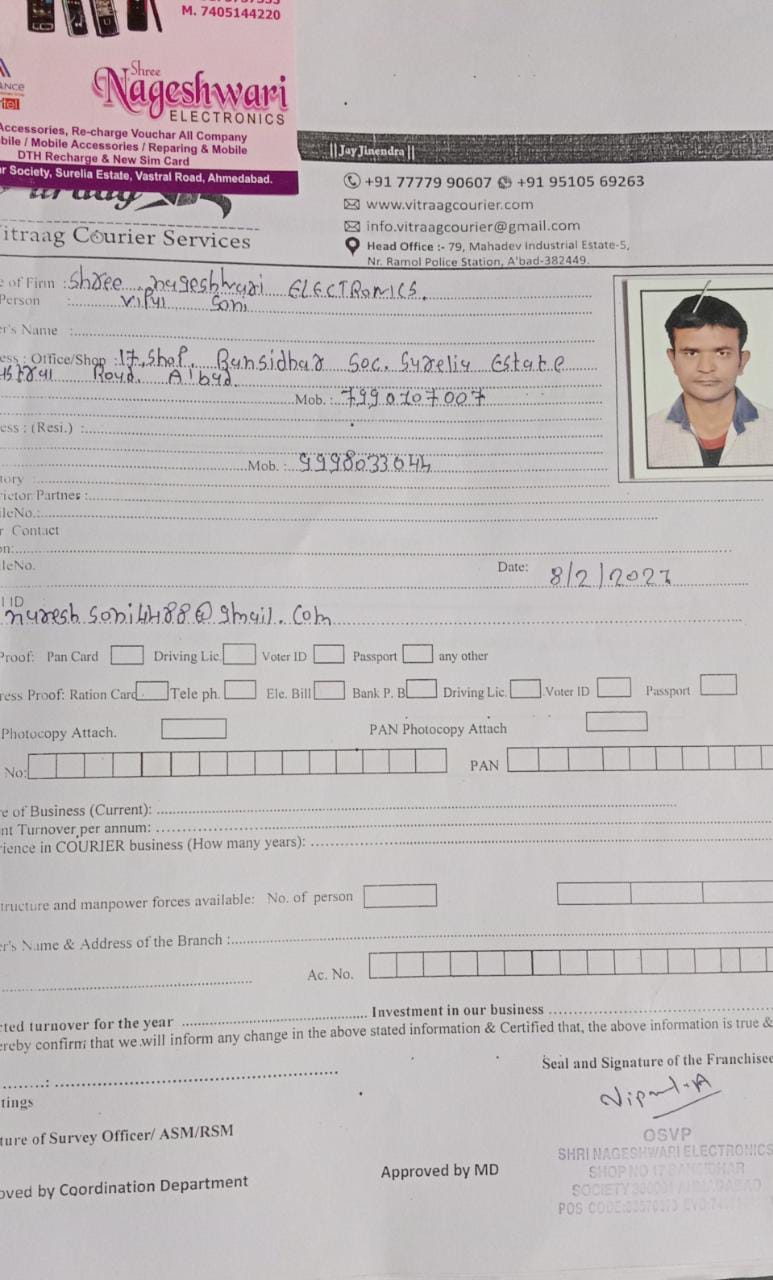 M. 7405144220
Shree
Nageshwari
ELECTRONICS
ANCE
tel
Accessories, Re-charge Vouchar All Company
bile / Mobile Accessories / Reparing & Mobile
DTH Recharge & New Sim Card
ar Society, Surelia Estate, Vastral Road, Ahmedabad.
|| Jay Jinendra ||
+91 77779 90607 +91 95105 69263
www.vitraagcourier.com
info.vitraagcourier@gmail.com
Head Office :- 79, Mahadev Industrial Estate-5,
Nr. Ramol Police Station, A'bad-382449.
itraag Courier Services
e of Firm : Shree nageshwari ELECTRONICS.
Person : Vipul Soni
er's Name :
ess : Office/Shop : 17, Shop, Bansidhar Soc. Surelia Estate
Road. A'bad
Mob. : 7990707007
ess : (Resi.) :
Mob. : 9998033044
tory :
rietor Partnes :
ileNo.:
r Contact
on:
leNo.
Date: 8/2/2027
l ID
naresh.soni4488@gmail.com
Proof: Pan Card Driving Lic. Voter ID Passport any other
ress Proof: Ration Card Tele ph. Ele. Bill Bank P. B Driving Lic. Voter ID Passport
Photocopy Attach. PAN Photocopy Attach
No: PAN
re of Business (Current):
nt Turnover per annum:
rience in COURIER business (How many years):
tructure and manpower forces available: No. of person
er's Name & Address of the Branch :
Ac. No.
cted turnover for the year Investment in our business
ereby confirm that we will inform any change in the above stated information & Certified that, the above information is true &
Seal and Signature of the Franchisee
tings
Vipul.A
ture of Survey Officer/ ASM/RSM
OSVP
SHRI NAGESHWARI ELECTRONICS
SHOP NO 17 BANSIDHAR
SOCIETY AHMADABAD
POS CODE:
Approved by MD
oved by Coordination Department